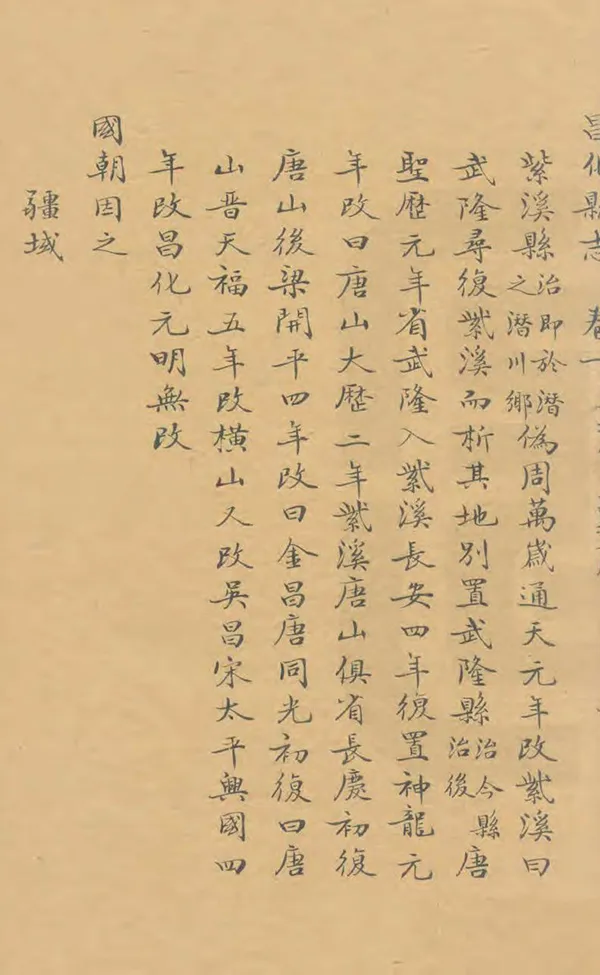 昌化縣志 卷一
紫溪縣治即於潛之潛川鄉偽周萬歲通天元年改紫溪曰
武隆尋復紫溪而析其地別置武隆縣治今縣治後唐
聖歷元年省武隆入紫溪長安四年復置神龍元
年改曰唐山大歷二年紫溪唐山俱省長慶初復
唐山後梁開平四年改曰金昌唐同光初復曰唐
山晋天福五年改橫山又改吳昌宋太平興國四
年改昌化元明無改
國朝因之
疆域